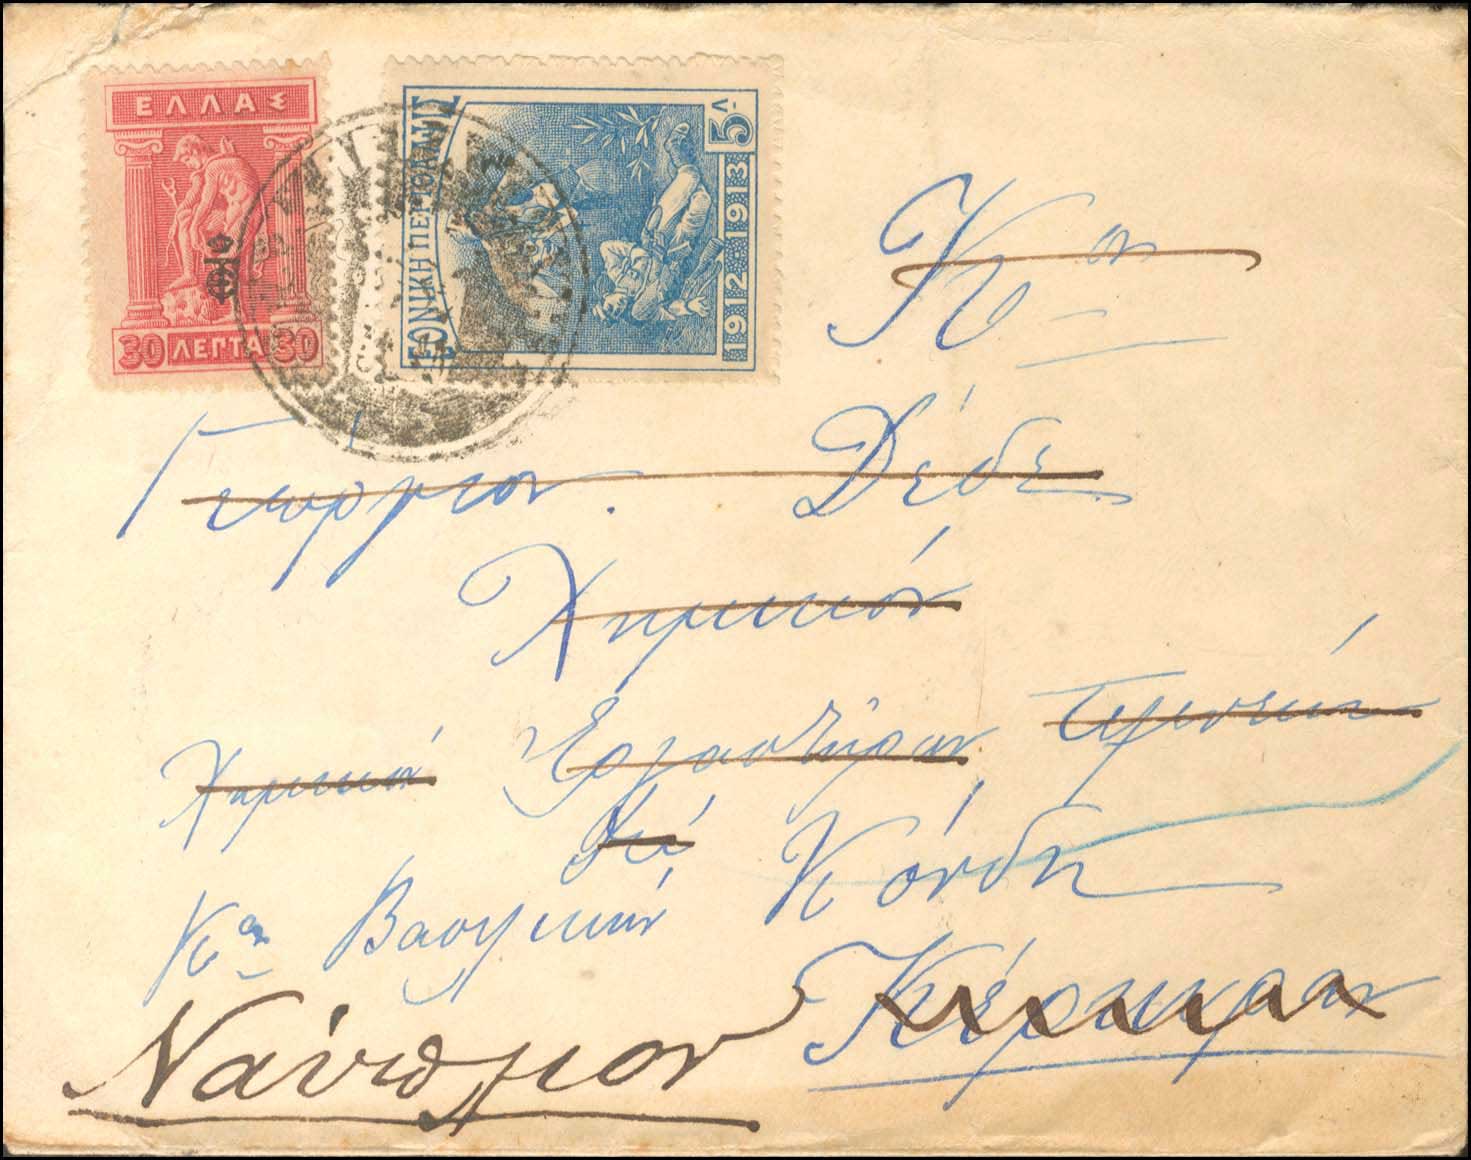 ΕΛΛΑΣ
30 ΛΕΠΤΑ 30
ΕΘΝΙΚΗ ΠΕΡΙΘΑΛΨΙΣ
5 Λ.
1912-1913
Κον
Γεώργιον Δέδε
Χημικόν
Χημικόν Εργαστήριον
διά Κόνδη
Κον Βασιλικήν
Κέρκυραν
Ναύπλιον